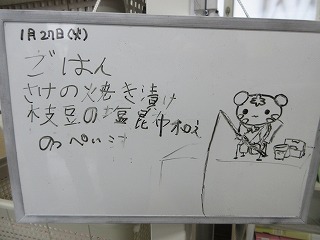 1月27日(火)
ごはん
さけの焼き漬け
枝豆の塩昆布和え
のっぺい汁